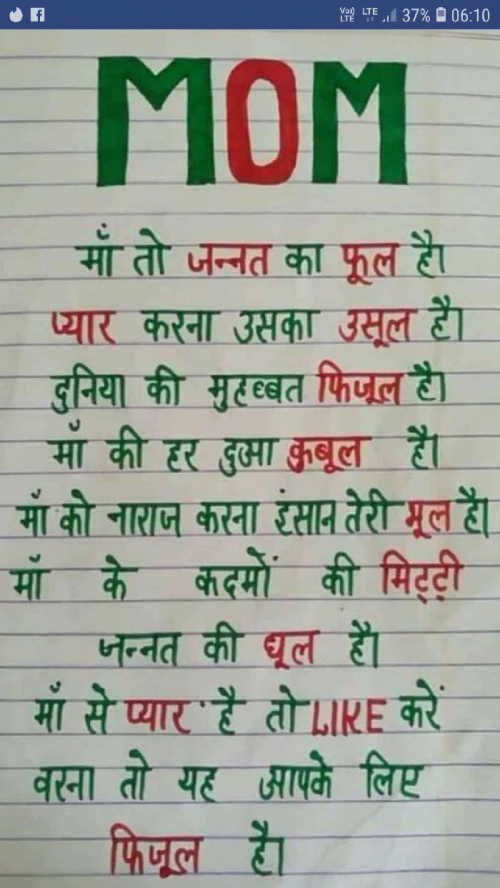 37% 06:10
MOM
माँ तो जन्नत का फूल है।
प्यार करना उसका उसूल है।
दुनिया की मुहब्बत फिजूल है।
माँ की हर दुआ कुबूल है।
माँ को नाराज करना इंसान तेरी भूल है।
माँ के कदमों की मिट्टी
जन्नत की धूल है।
माँ से प्यार है तो LIKE करें
वरना तो यह आपके लिए
फिजूल है।